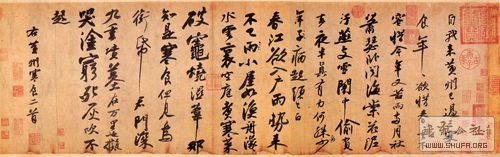 自我來黃州已過三寒
食年〻欲惜春春去不
容惜今年又苦雨兩月秋
蕭瑟臥聞海棠花泥
汙燕支雪闇中偷負
去夜半真有力何殊少
年子病起頭已白
春江欲入戶雨勢來
不已雨小屋如漁舟濛〻
水雲裏空庖煮寒菜
破竈燒濕葦那
知是寒食但見烏
銜帋君門深
九重墳墓在萬里也擬
哭塗窮死灰吹不
起
右黃州寒食二首
WWW.SHUFA.ORG